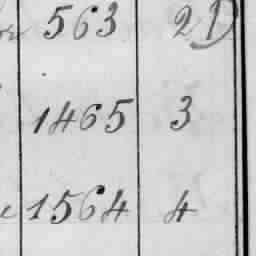 563 21
1465 3
1564 4